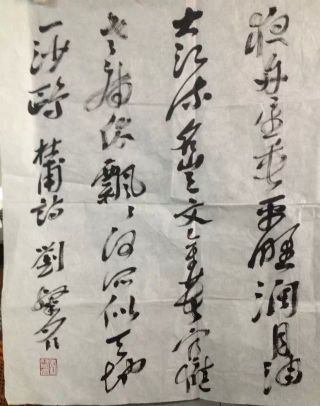 夜舟星垂平野闊月涌
大江流名豈文章著官應
老病休飄〻何所似天地
一沙鷗 杜甫詩 劉